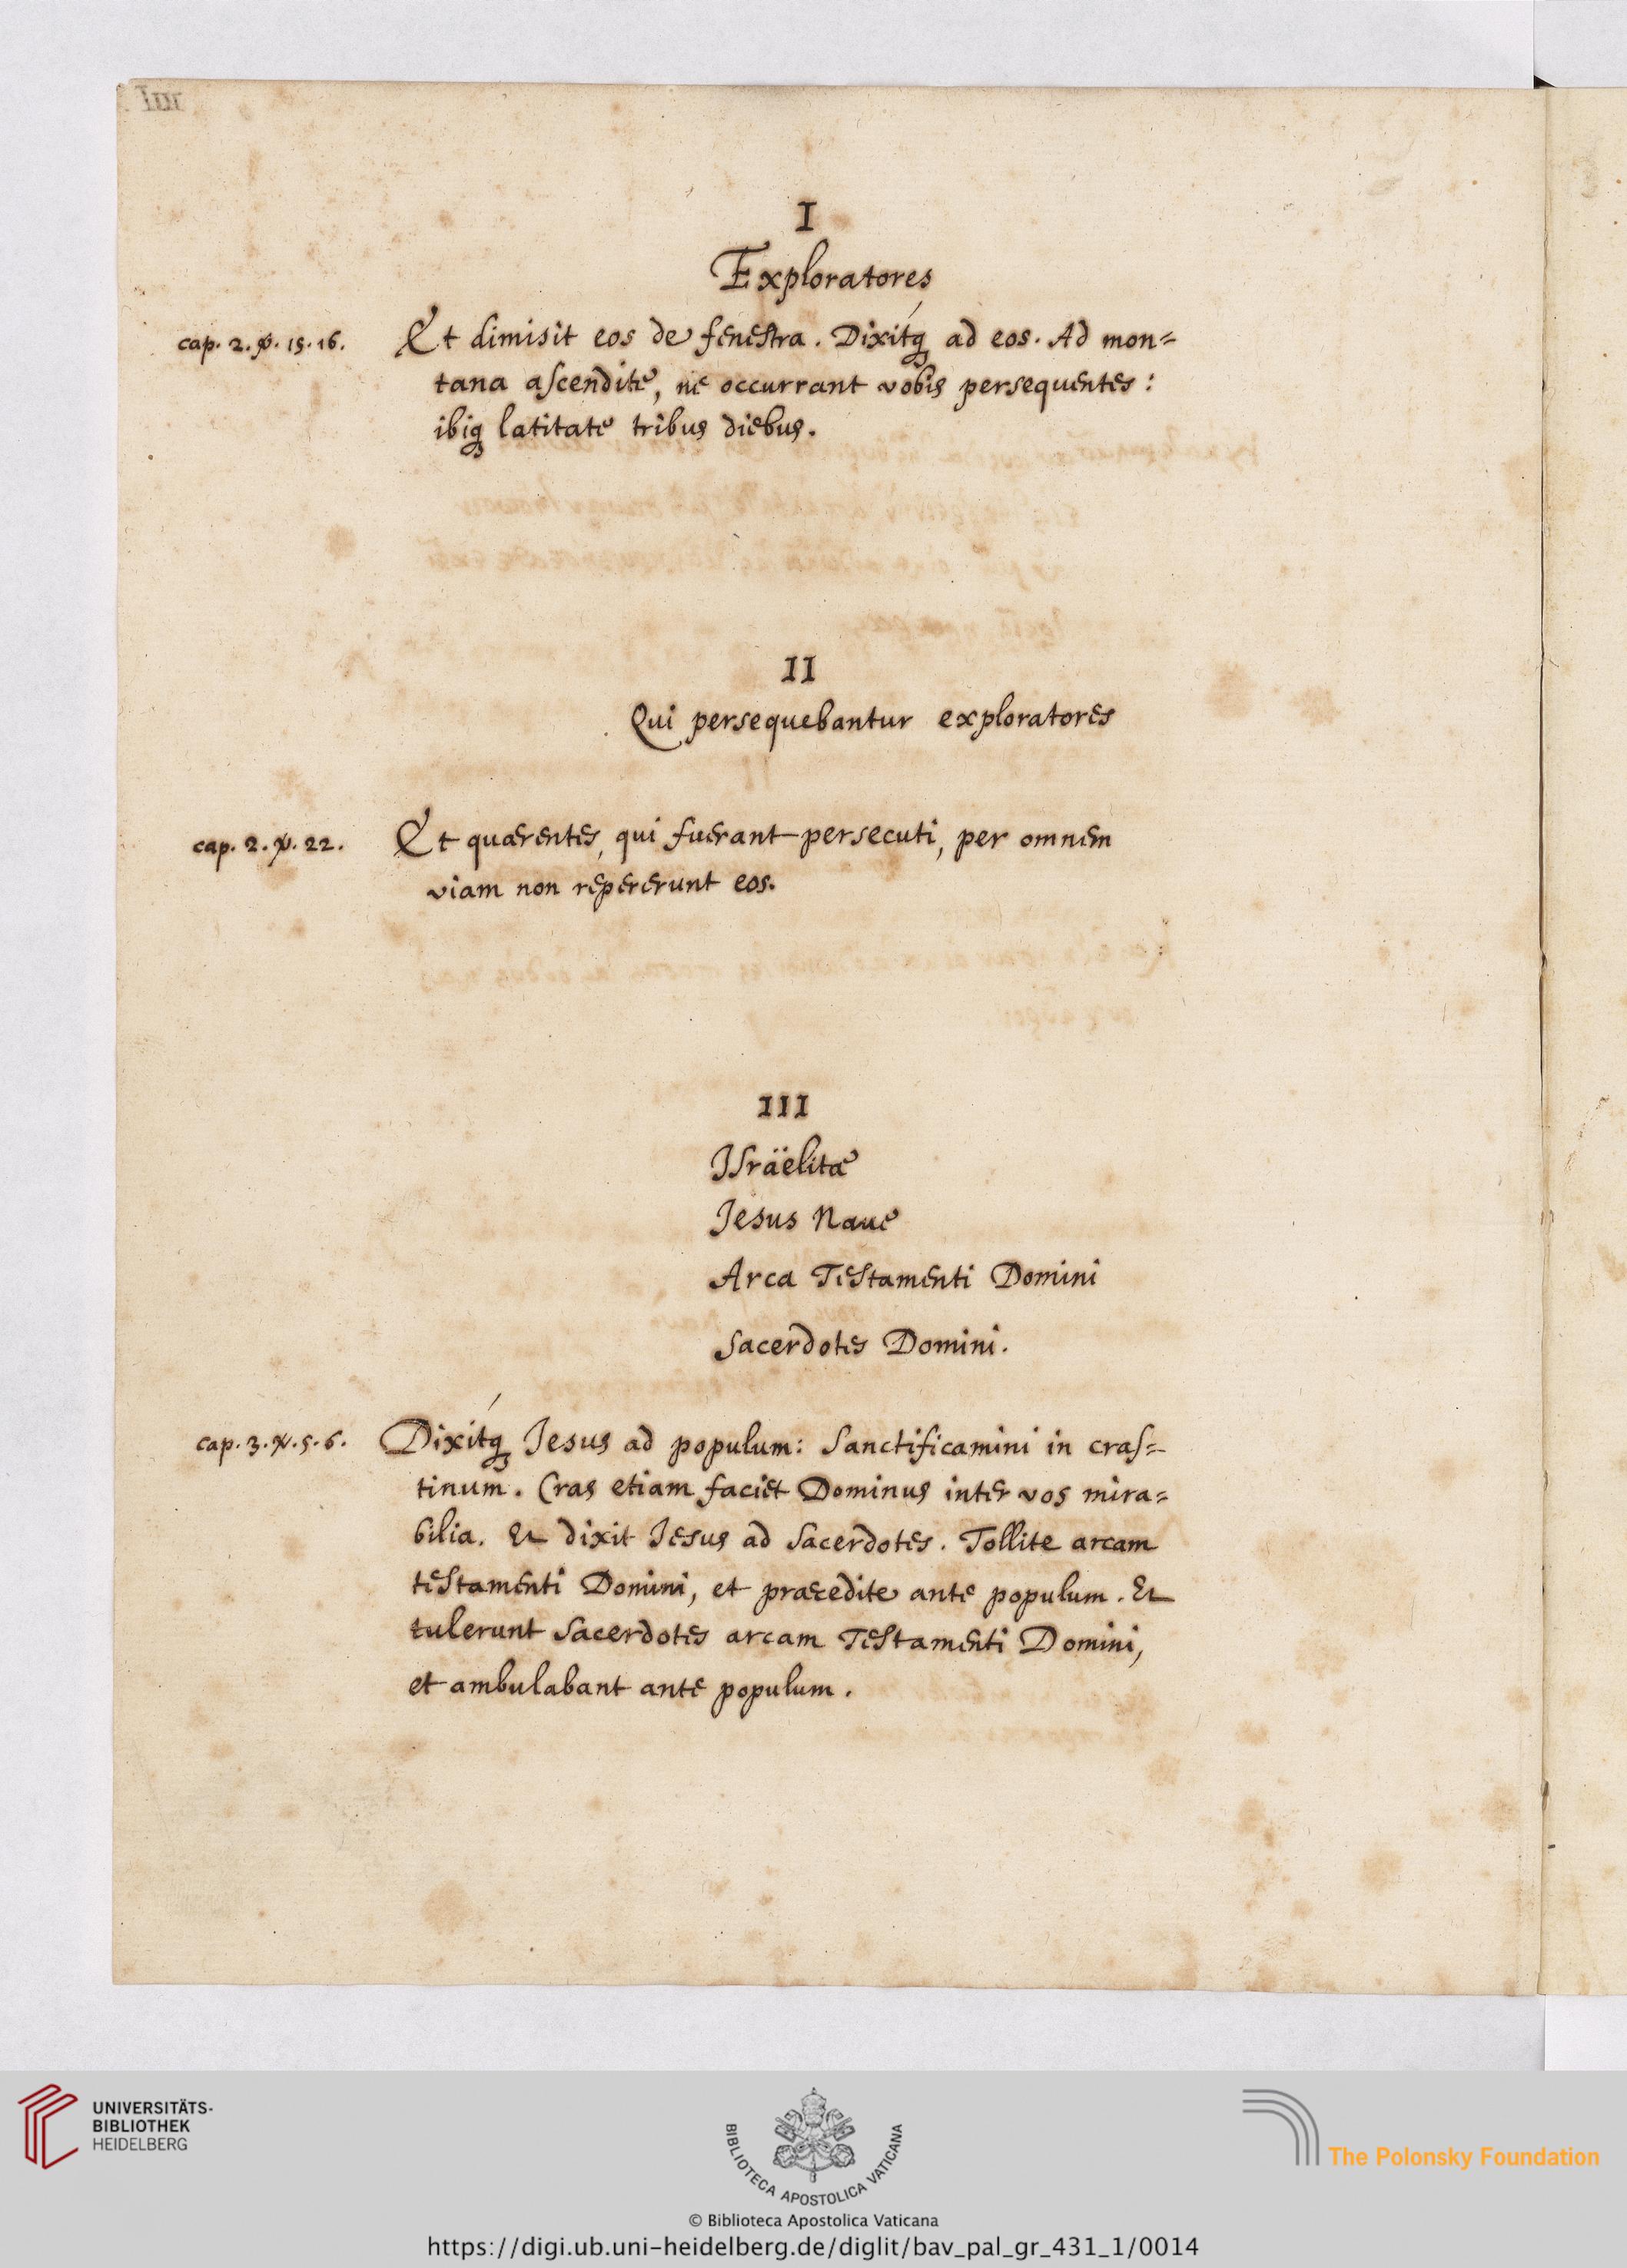 I
Exploratores
cap. 2. ℣. 15. 16. Et dimisit eos de fenestra. Dixitq́; ad eos. Ad mon=
tana ascendite, ne occurrant vobis persequentes:
ibiq; latitate tribus diebus.
II
Qui persequebantur exploratores
cap. 2. ℣. 22. Et quærentes, qui fuerant persecuti, per omnem
viam non repererunt eos.
III
Isräelitæ
Jesus Naue
Arca Testamenti Domini
Sacerdotes Domini.
cap. 3. ℣. 5. 6. Dixitq́; Jesus ad populum: Sanctificamini in cras=
tinum. Cras etiam faciet Dominus inter vos mira=
bilia. Et dixit Jesus ad Sacerdotes. Tollite arcam
testamenti Domini, et præcedite ante populum. Et
tulerunt Sacerdotes arcam Testamenti Domini,
et ambulabant ante populum.
UNIVERSITÄTS-
BIBLIOTHEK
HEIDELBERG
BIBLIOTECA APOSTOLICA VATICANA
The Polonsky Foundation
© Biblioteca Apostolica Vaticana
https://digi.ub.uni-heidelberg.de/diglit/bav_pal_gr_431_1/0014